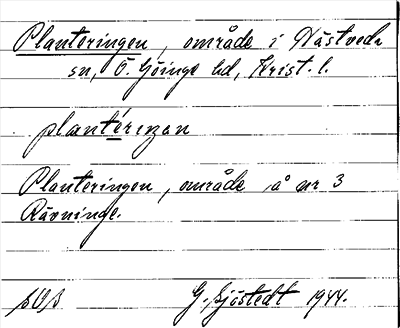 Planteringen, område i Hästveda
sn, Ö. Göinge hd, Krist. l.
plantérıŋan
Planteringen, område å nr 3
Rävninge.
G. Sjöstedt 1944.